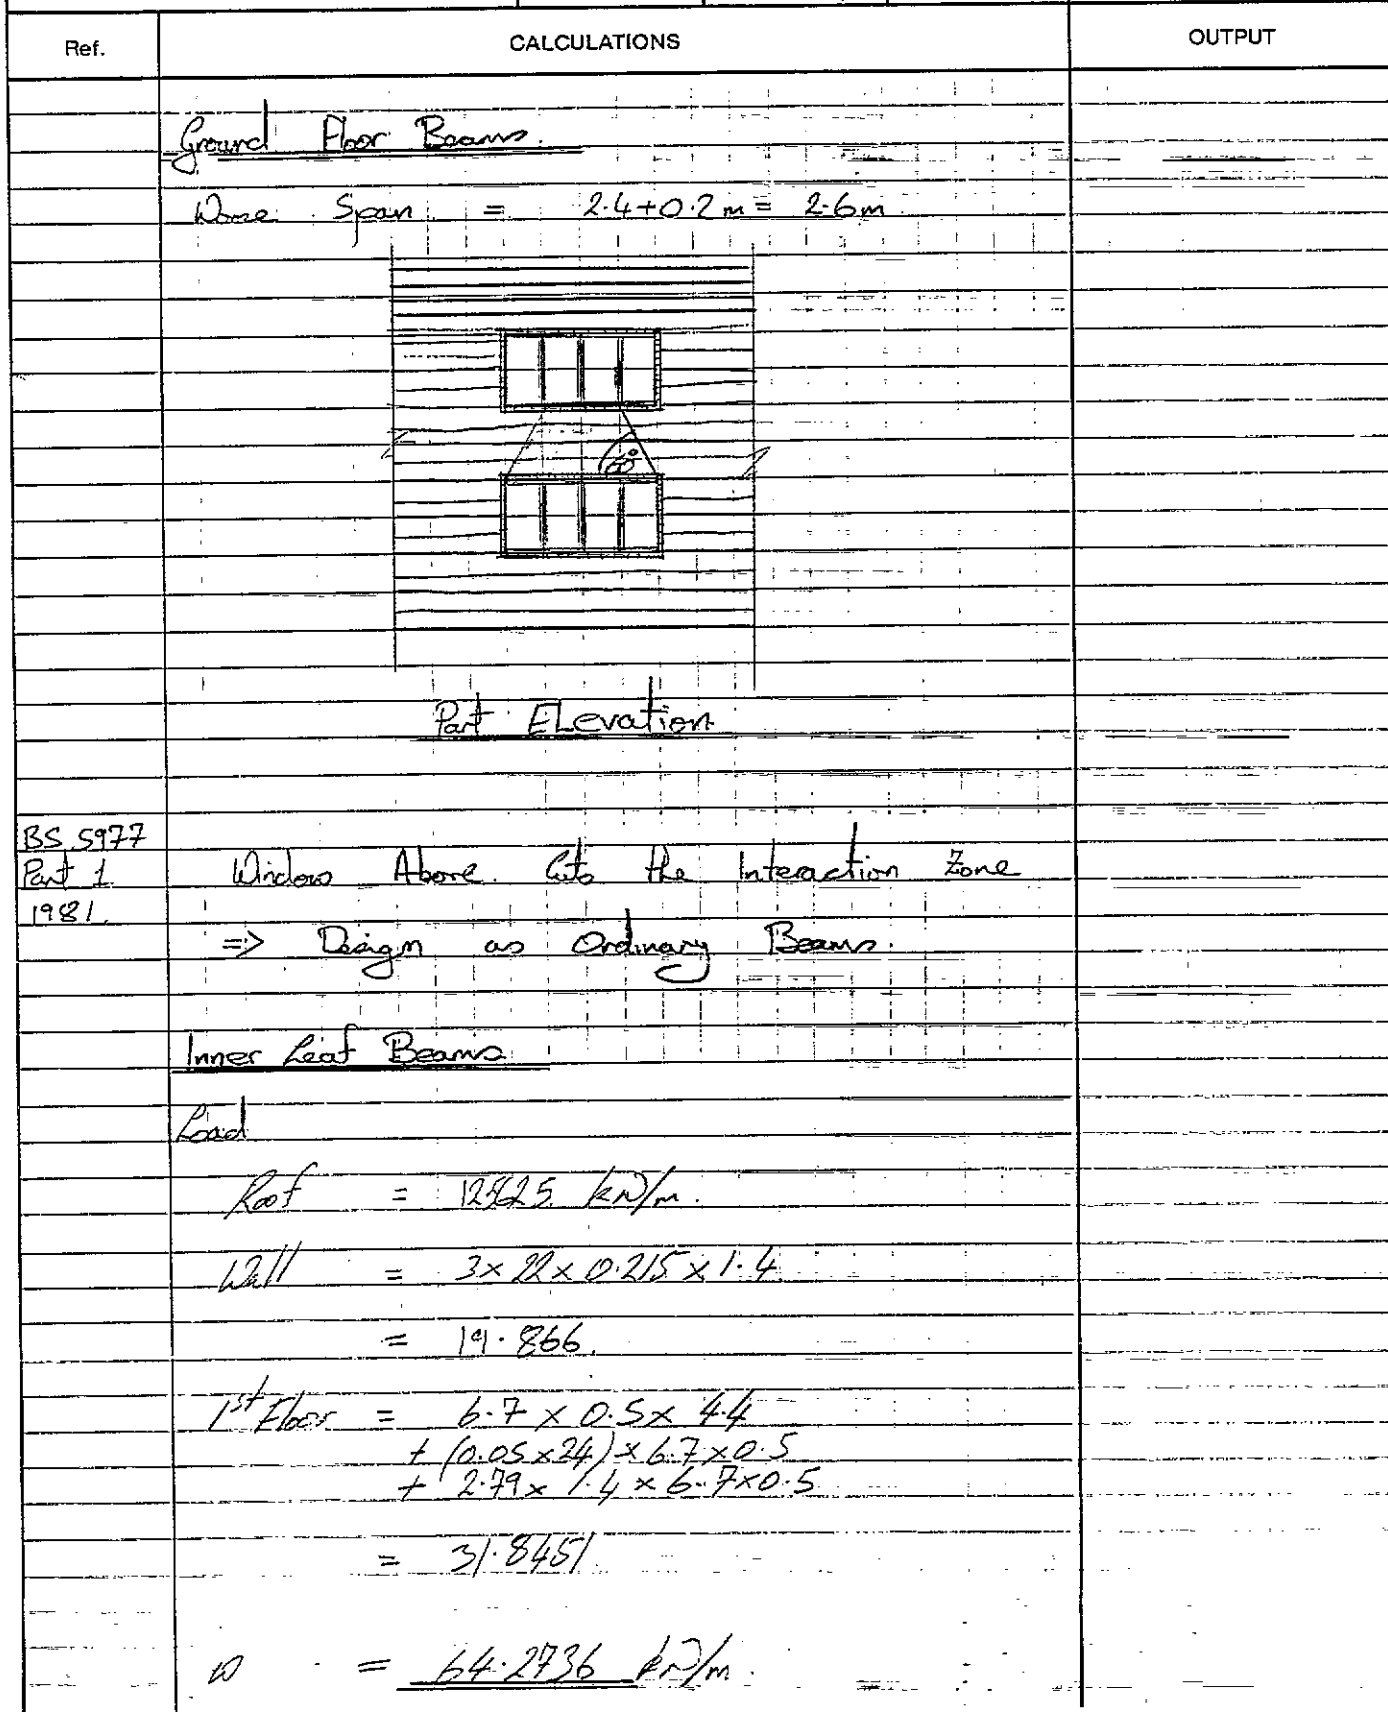 Ref.
CALCULATIONS
OUTPUT
Ground Floor Beams.
Worse Span = 2.4+0.2m = 2.6m
60°
Part Elevation
BS 5977
Part 1
1981.
Window Above Cuts the Interaction Zone
=> Design as Ordinary Beams.
Inner Leaf Beams
Load
Roof = 12.5625 kN/m.
Wall = 3 x 22 x 0.215 x 1.4
= 19.866.
1st Floor = 6.7 x 0.5 x 4.4
+ (0.05 x 24) x 6.7 x 0.5
+ 2.79 x 1.4 x 6.7 x 0.5
= 31.8451
w = 64.2736 kN/m.